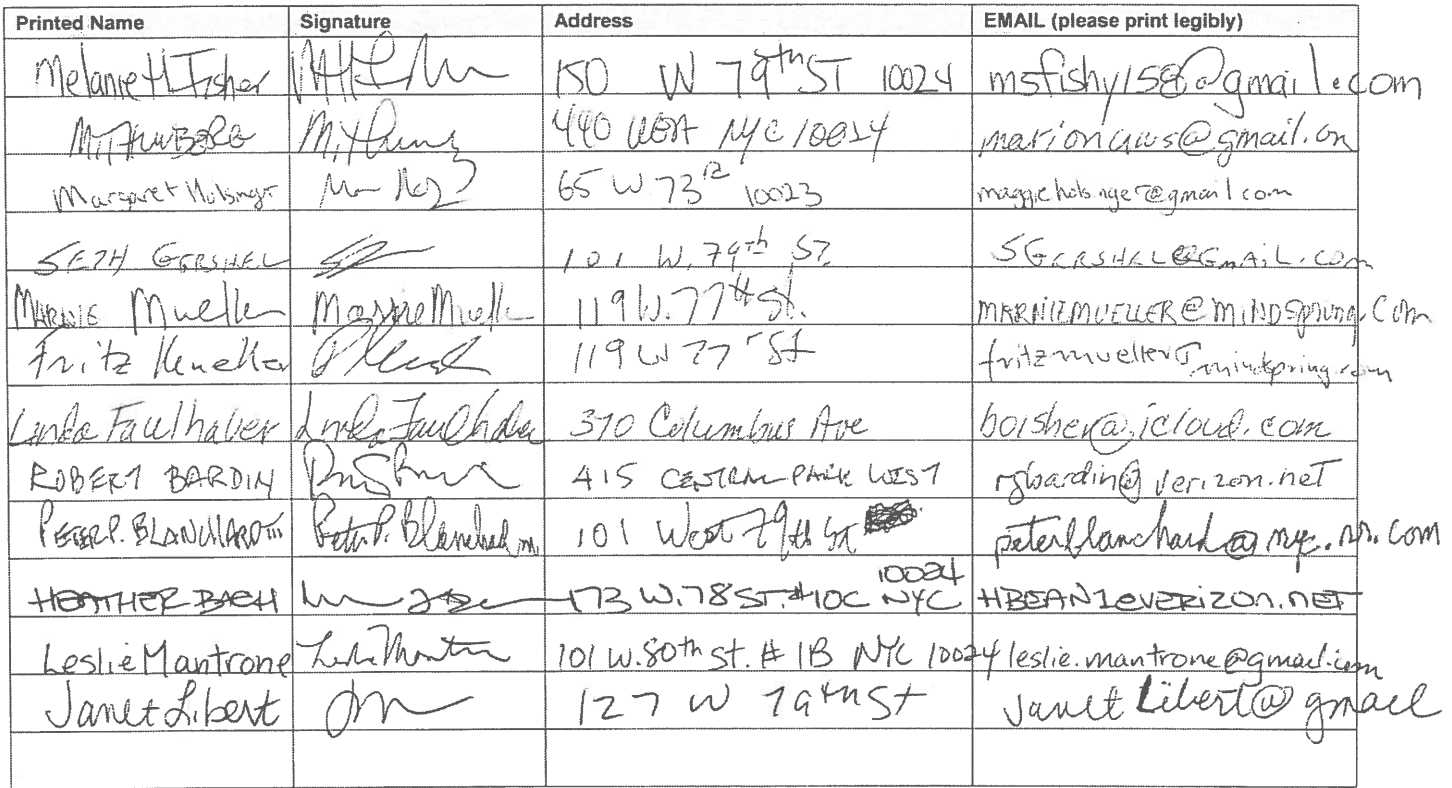 Printed Name Signature Address EMAIL (please print legibly)
Melanie H Fisher 150 W 79th ST 10024 msfishy158@gmail.com
440 West NYC 10024
Margaret Holsinger 65 W 73rd 10023 maggieholsinger@gmail.com
SETH GERSHEL 101 W. 79th ST. SGERSHEL@GMAIL.COM
MARNIE Mueller Marnie Mueller 119 W. 77th St. MARNIEMUELLER@MINDSpring.Com
Fritz Mueller 119 W 77 St fritzmueller@mindspring.com
Linda Faulhaber Linda Faulhaber 370 Columbus Ave boisher@icloud.com
ROBERT BARDIN 415 CENTRAL PARK WEST rgbardin@verizon.net
PETER P. BLANCHARD III Peter P. Blanchard III 101 West 79th St peterblanchard@nyc.rr.com
HEATHER BAEH 173 W. 78 ST. #10C NYC 10024 HBEAN1@VERIZON.NET
Leslie Mantrone 101 W. 80th St. # 1B NYC 10024 leslie.mantrone@gmail.com
Janet Libert 127 W 79th St Janet Libert@gmail